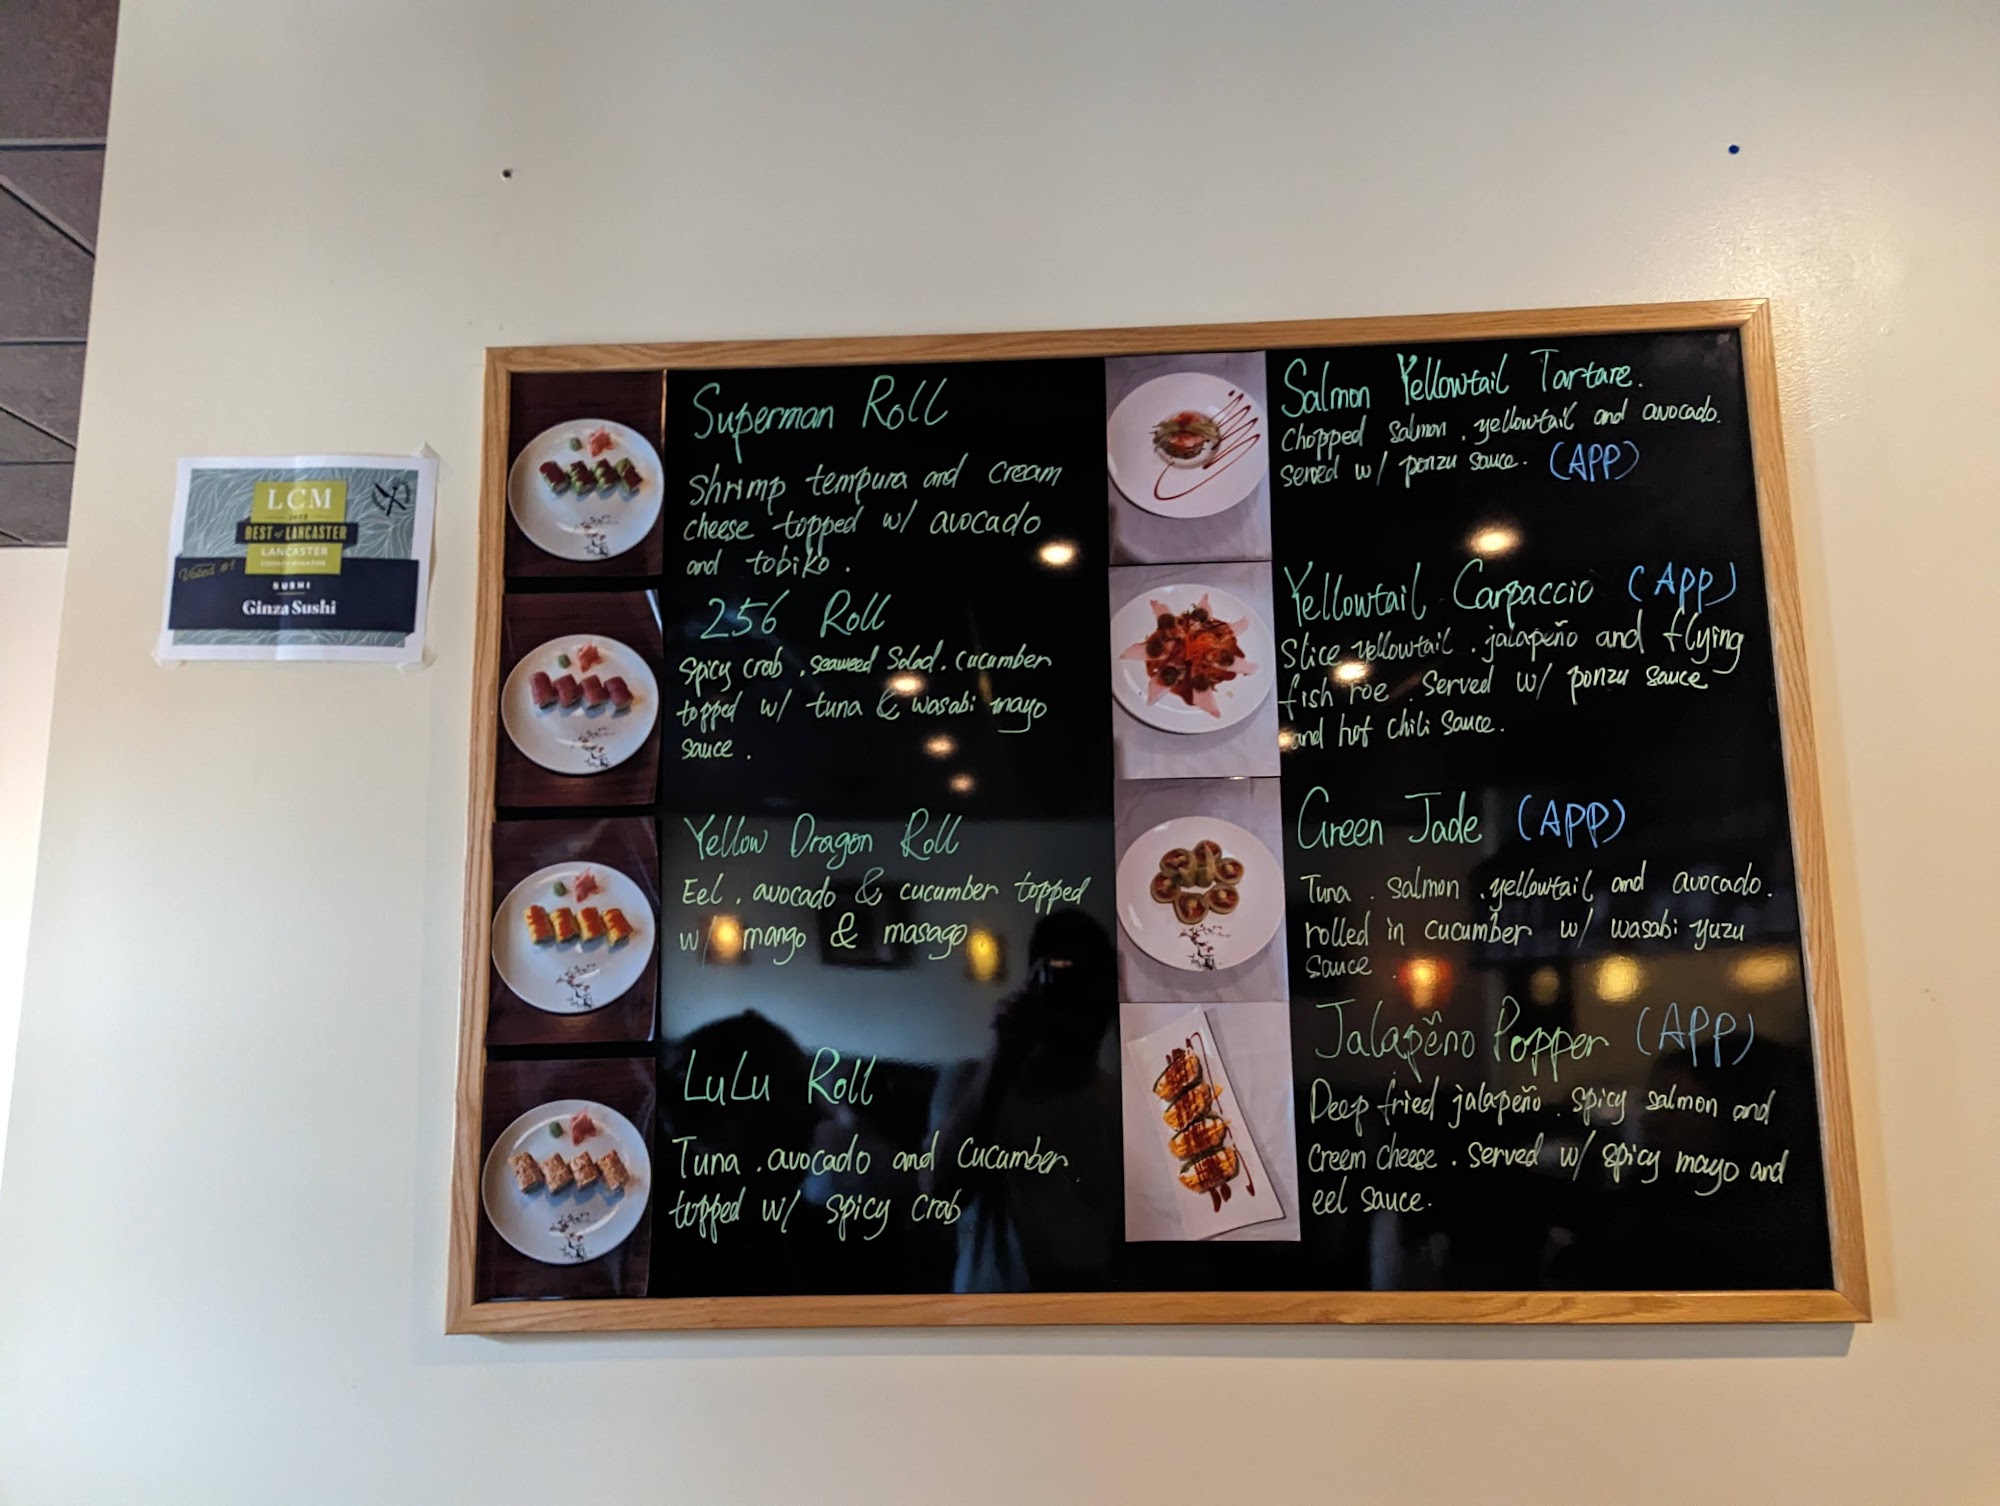 LCM
BEST of LANCASTER
LANCASTER
COUNTY MAGAZINE
Voted #1
SUSHI
Ginza Sushi
Superman Roll
Shrimp tempura and cream
cheese topped w/ avocado
and tobiko.
256 Roll
Spicy crab . seaweed Salad . cucumber
topped w/ tuna & wasabi mayo
sauce .
Yellow Dragon Roll
Eel . avocado & cucumber topped
w/ mango & masago
LuLu Roll
Tuna . avocado and cucumber
topped w/ spicy crab
Salmon Yellowtail Tartare.
Chopped salmon . yellowtail and avocado.
served w/ ponzu sauce. (APP)
Yellowtail Carpaccio (APP)
Slice yellowtail . jalapeño and flying
fish roe . Served w/ ponzu sauce
and hot chili sauce.
Green Jade (APP)
Tuna . salmon . yellowtail and avocado.
rolled in cucumber w/ wasabi yuzu
sauce .
Jalapẽno Popper (APP)
Deep fried jalapeño . spicy salmon and
creem cheese . served w/ spicy mayo and
eel sauce.